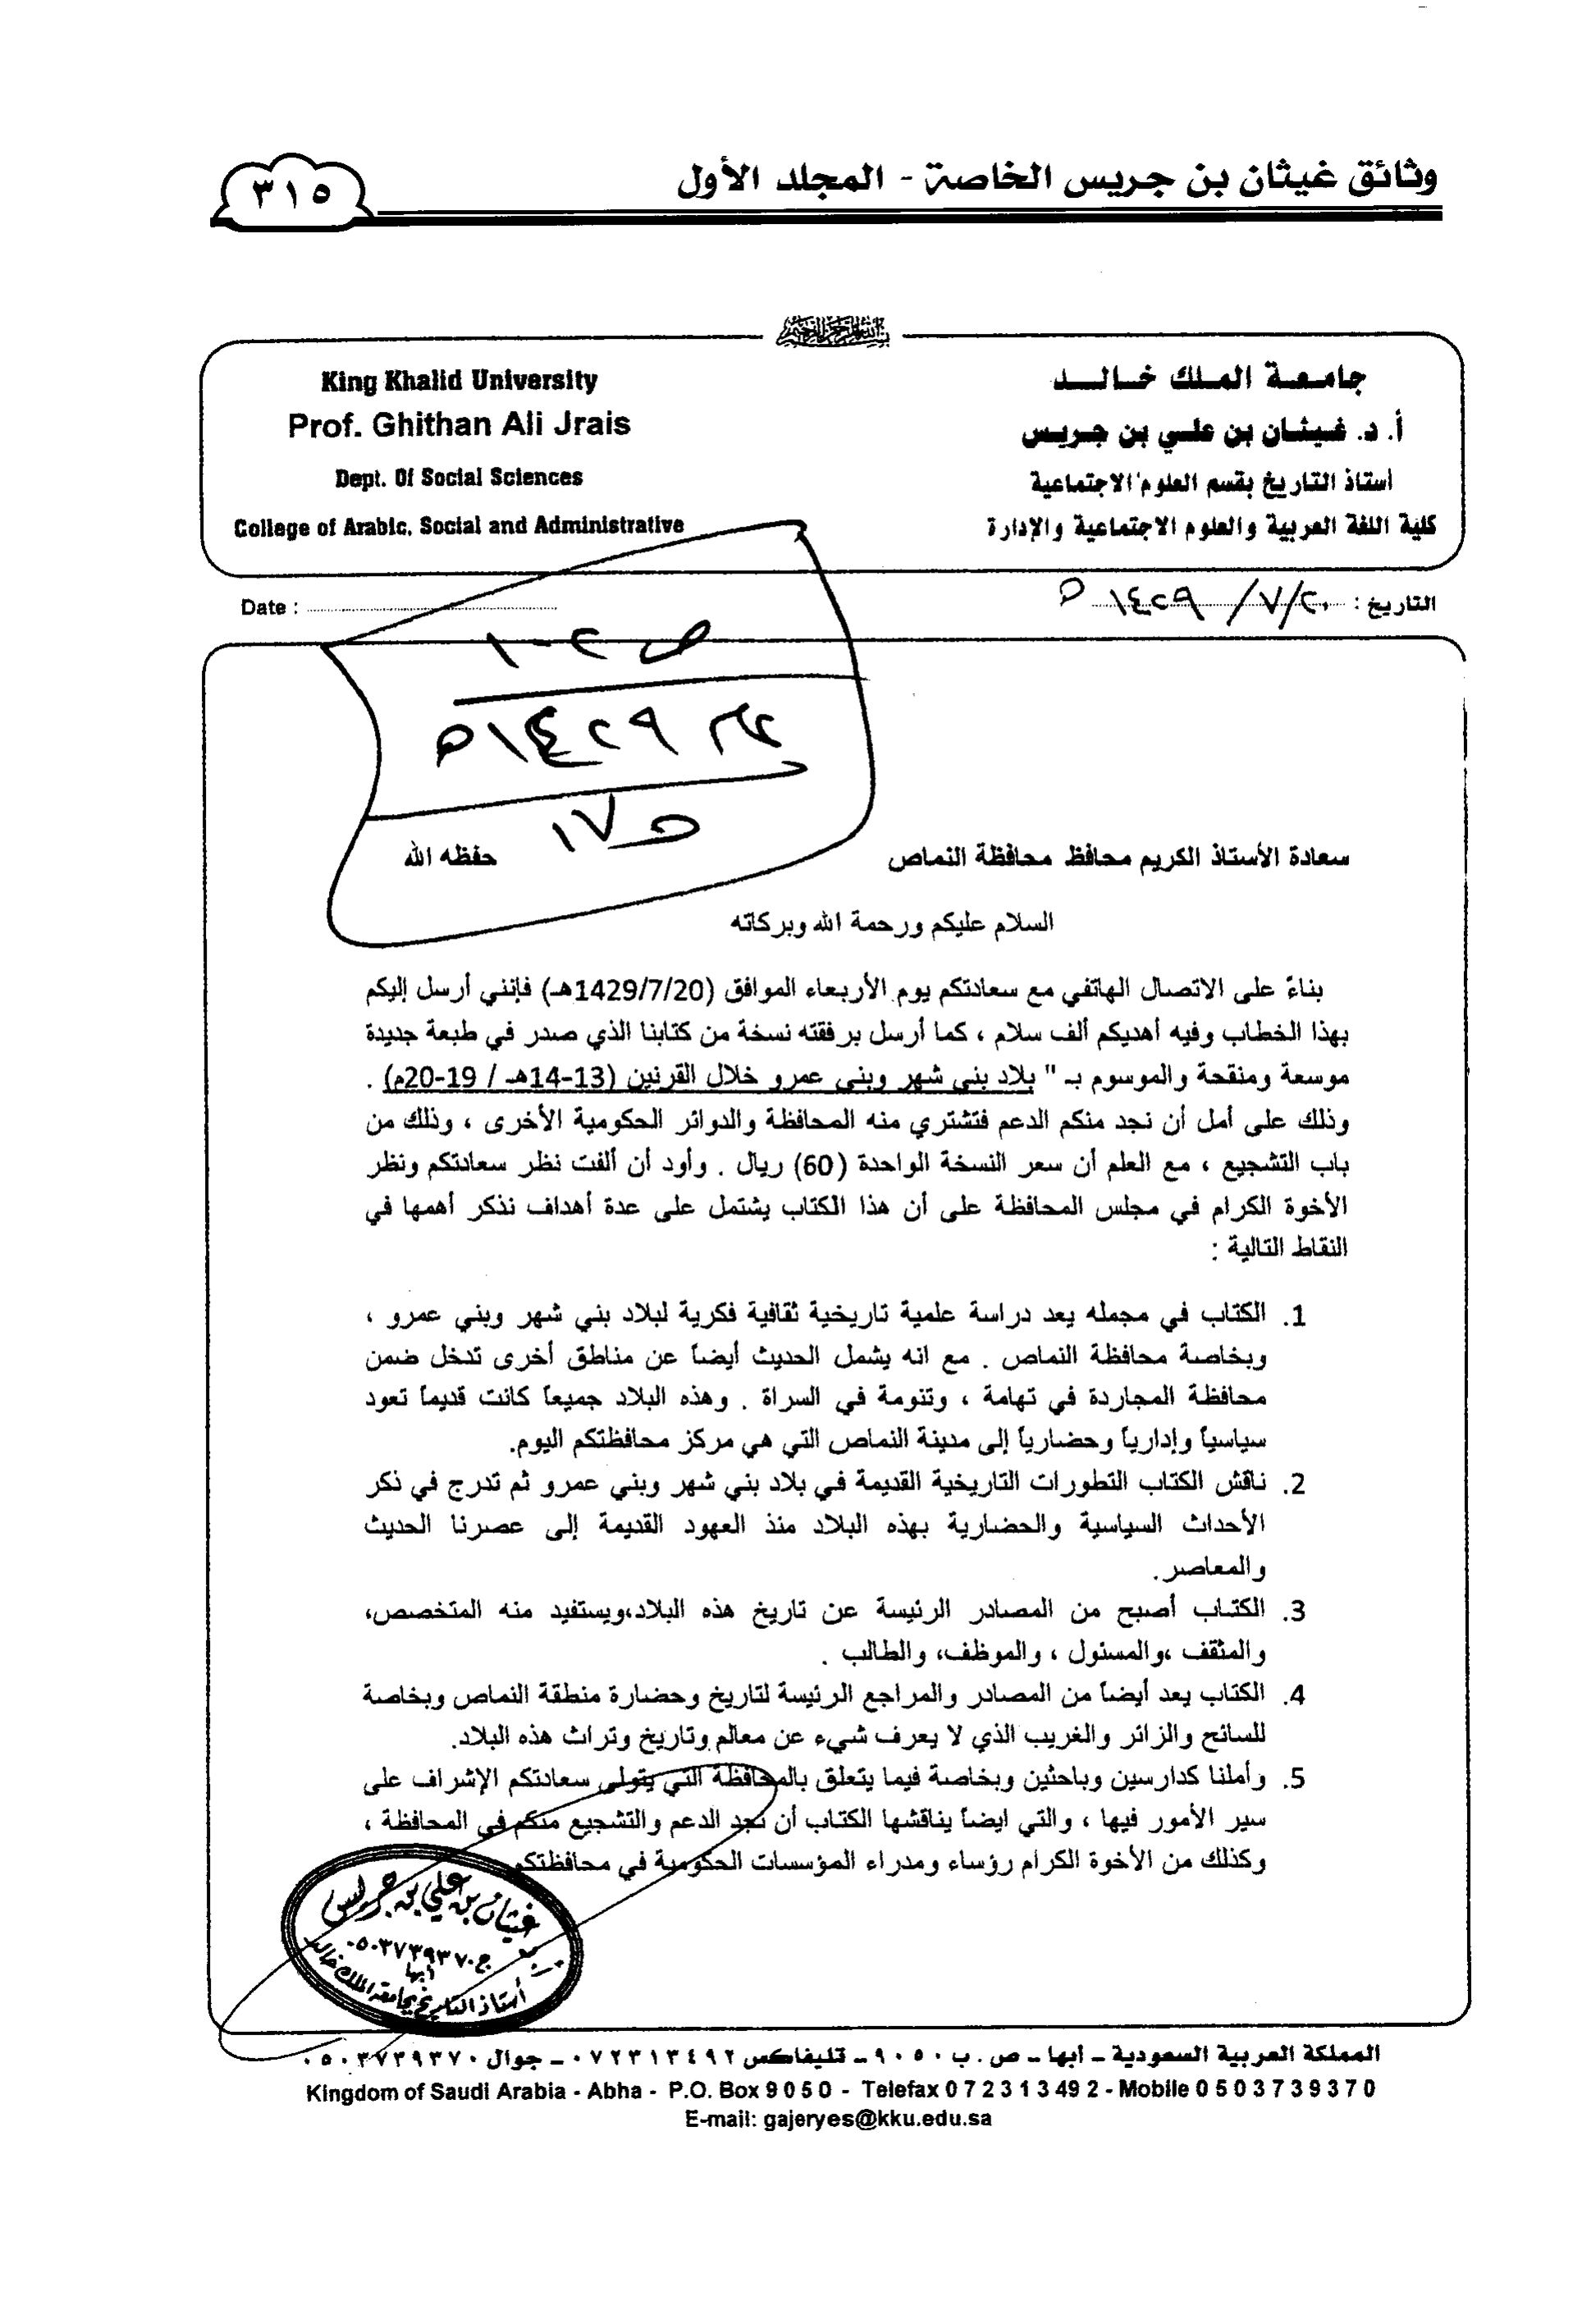 وثائق غيثان بن جريس الخاصة - المجلد الأول
٣١٥
جامعة الملك خالد
أ. د. غيثان بن علي بن جريس
استاذ التاريخ بقسم العلوم الاجتماعية
كلية اللغة العربية والعلوم الاجتماعية والإدارة
King Khalid University
Prof. Ghithan Ali Jrais
Dept. Of Social Sciences
College of Arabic, Social and Administrative
التاريخ : ٢٠/٧/١٤٢٩هـ
Date :
ص ٢-١
١٤٢٩هـ
١٧
سعادة الأستاذ الكريم محافظ محافظة النماص حفظه الله
السلام عليكم ورحمة الله وبركاته
بناءً على الاتصال الهاتفي مع سعادتكم يوم الأربعاء الموافق (1429/7/20هـ) فإنني أرسل إليكم
بهذا الخطاب وفيه أهديكم ألف سلام ، كما أرسل برفقته نسخة من كتابنا الذي صدر في طبعة جديدة
موسعة ومنقحة والموسوم بـ " بلاد بني شهر وبني عمرو خلال القرنين (13-14هـ / 19-20م) .
وذلك على أمل أن نجد منكم الدعم فتشتري منه المحافظة والدوائر الحكومية الأخرى ، وذلك من
باب التشجيع ، مع العلم أن سعر النسخة الواحدة (60) ريال . وأود أن ألفت نظر سعادتكم ونظر
الأخوة الكرام في مجلس المحافظة على أن هذا الكتاب يشتمل على عدة أهداف نذكر أهمها في
النقاط التالية :
1. الكتاب في مجمله يعد دراسة علمية تاريخية ثقافية فكرية لبلاد بني شهر وبني عمرو ،
وبخاصة محافظة النماص . مع انه يشمل الحديث أيضاً عن مناطق أخرى تدخل ضمن
محافظة المجاردة في تهامة ، وتنومة في السراة . وهذه البلاد جميعاً كانت قديماً تعود
سياسياً وإدارياً وحضارياً إلى مدينة النماص التي هي مركز محافظتكم اليوم.
2. ناقش الكتاب التطورات التاريخية القديمة في بلاد بني شهر وبني عمرو ثم تدرج في ذكر
الأحداث السياسية والحضارية بهذه البلاد منذ العهود القديمة إلى عصرنا الحديث
والمعاصر.
3. الكتاب أصبح من المصادر الرئيسة عن تاريخ هذه البلاد،ويستفيد منه المتخصص،
والمثقف ،والمسئول ، والموظف، والطالب .
4. الكتاب يعد أيضاً من المصادر والمراجع الرئيسة لتاريخ وحضارة منطقة النماص وبخاصة
للسائح والزائر والغريب الذي لا يعرف شيء عن معالم وتاريخ وتراث هذه البلاد.
5. وأملنا كدارسين وباحثين وبخاصة فيما يتعلق بالمحافظة التي يتولى سعادتكم الإشراف على
سير الأمور فيها ، والتي ايضاً يناقشها الكتاب أن نجد الدعم والتشجيع منكم في المحافظة ،
وكذلك من الأخوة الكرام رؤساء ومدراء المؤسسات الحكومية في محافظتكم
غيثان بن علي بن جريس
ج ٠٥٠٣٧٣٩٣٧٠
أبها
أستاذ التاريخ بجامعة الملك خالد
المملكة العربية السعودية ــ أبها ــ ص . ب ٩٠٥٠ ــ تليفاكس ٠٧٢٣١٣٤٩٢ ــ جوال ٠٥٠٣٧٣٩٣٧٠
Kingdom of Saudi Arabia - Abha - P.O. Box 9 0 5 0 - Telefax 0 7 2 3 1 3 49 2 - Mobile 0 5 0 3 7 3 9 3 7 0
E-mail: gajeryes@kku.edu.sa